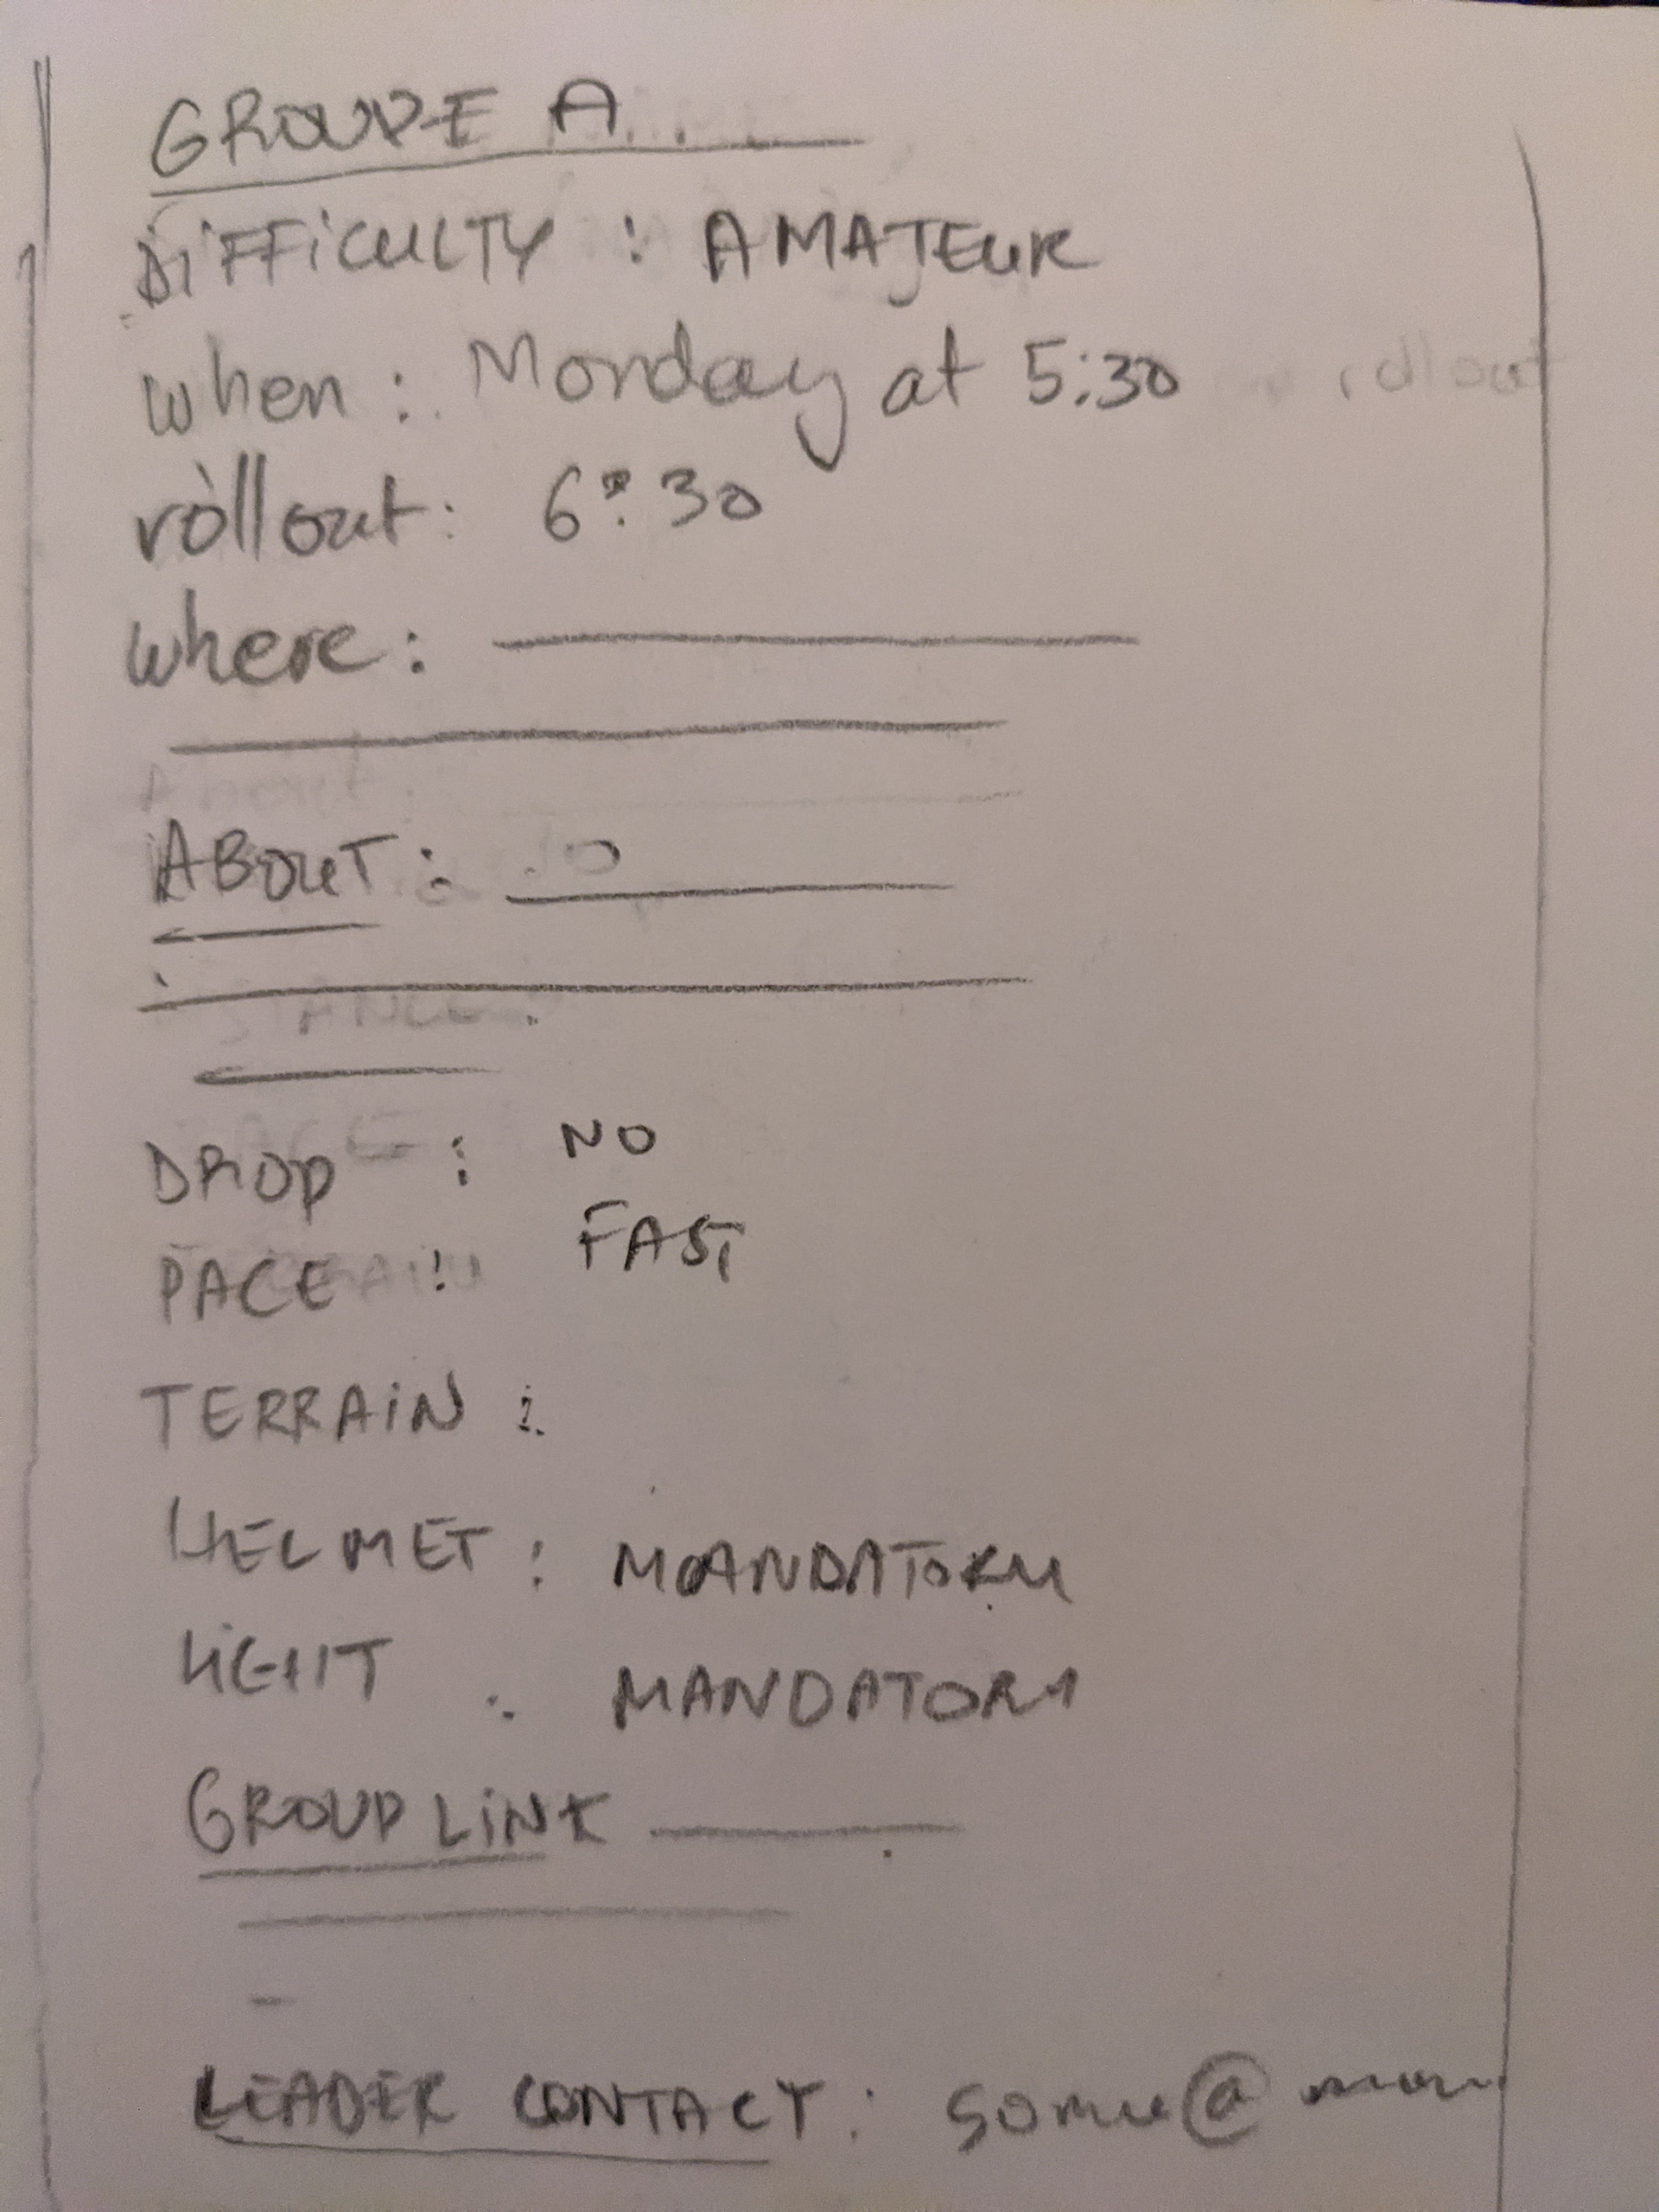 GROUPE A
DiFFiCULTY : AMATEUR
when : Monday at 5:30
rollout
rollout : 6:30
where :
About :
ABOUT :
DROP : NO
PACE : FAST
TERRAiN :
HELMET : MANDATORY
LiGHT : MANDATORY
GROUP LiNK
LEADER CONTACT :